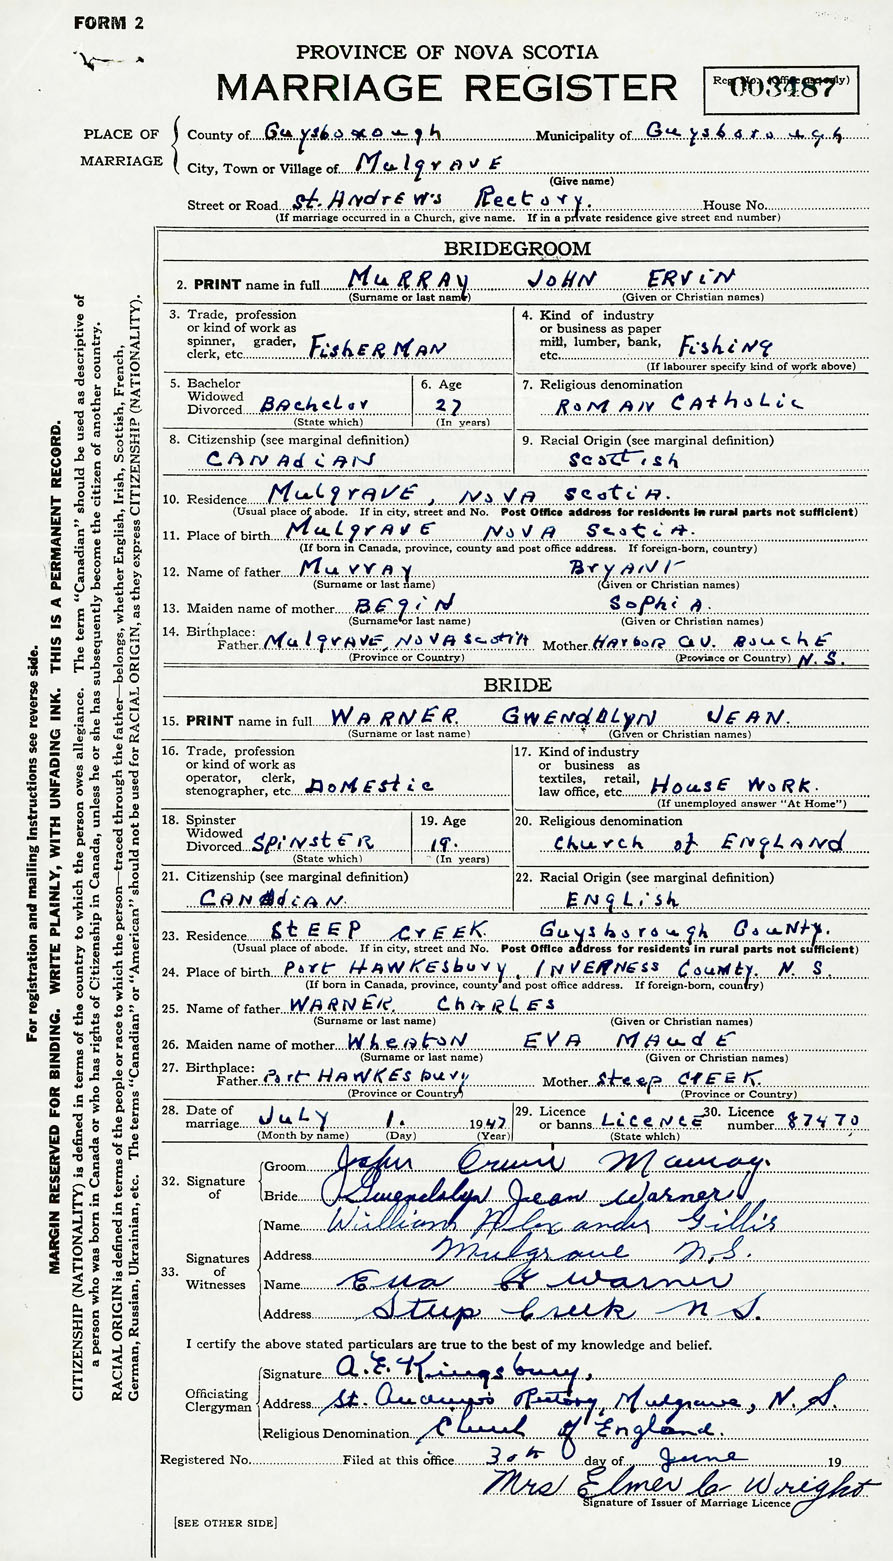 FORM 2
PROVINCE OF NOVA SCOTIA
MARRIAGE REGISTER
Reg. No. (Office use only)
003487
PLACE OF MARRIAGE
County of Guysborough Municipality of Guysborough
City, Town or Village of Mulgrave
(Give name)
Street or Road St. Andrew's Rectory. House No.
(If marriage occurred in a Church, give name. If in a private residence give street and number)
BRIDEGROOM
2. PRINT name in full Murray John Ervin
(Surname or last name) (Given or Christian names)
3. Trade, profession or kind of work as spinner, grader, clerk, etc. Fisherman
4. Kind of industry or business as paper mill, lumber, bank, etc. Fishing
(If labourer specify kind of work above)
5. Bachelor Widowed Divorced Bachelor
(State which)
6. Age 27
(In years)
7. Religious denomination
Roman Catholic
8. Citizenship (see marginal definition)
Canadian
9. Racial Origin (see marginal definition)
Scottish
10. Residence Mulgrave, Nova Scotia.
(Usual place of abode. If in city, street and No. Post Office address for residents in rural parts not sufficient)
11. Place of birth Mulgrave Nova Scotia.
(If born in Canada, province, county and post office address. If foreign-born, country)
12. Name of father Murray Bryant
(Surname or last name) (Given or Christian names)
13. Maiden name of mother Begin Sophia.
(Surname or last name) (Given or Christian names)
14. Birthplace: Father Mulgrave, Nova Scotia Mother Harbor au Bouche N.S.
(Province or Country) (Province or Country)
BRIDE
15. PRINT name in full Warner. Gwendolyn Jean.
(Surname or last name) (Given or Christian names)
16. Trade, profession or kind of work as operator, clerk, stenographer, etc. Domestic
17. Kind of industry or business as textiles, retail, law office, etc. House Work.
(If unemployed answer "At Home")
18. Spinster Widowed Divorced Spinster
(State which)
19. Age 19.
(In years)
20. Religious denomination
Church of England
21. Citizenship (see marginal definition)
Canadian.
22. Racial Origin (see marginal definition)
English
23. Residence Steep Creek Guysborough County.
(Usual place of abode. If in city, street and No. Post Office address for residents in rural parts not sufficient)
24. Place of birth Port Hawkesbury, Inverness County. N.S.
(If born in Canada, province, county and post office address. If foreign-born, country)
25. Name of father Warner. Charles
(Surname or last name) (Given or Christian names)
26. Maiden name of mother Wheaton Eva Maude
(Surname or last name) (Given or Christian names)
27. Birthplace: Father Port Hawkesbury Mother Steep Creek.
(Province or Country) (Province or Country)
28. Date of marriage July 1. 1947
(Month by name) (Day) (Year)
29. Licence or banns Licence
(State which)
30. Licence number 87470
32. Signature of
Groom John Ervin Murray.
Bride Gwendolyn Jean Warner
33. Signatures of Witnesses
Name William Alexander Gillis
Address Mulgrave N.S.
Name Eva Warner
Address Steep Creek N S.
I certify the above stated particulars are true to the best of my knowledge and belief.
Officiating Clergyman
Signature A. E. Kingsbury,
Address St. Andrew's Rectory, Mulgrave, N.S.
Religious Denomination Church of England.
Registered No. Filed at this office 30th day of June 19
Mrs Elmer C Wright
Signature of Issuer of Marriage Licence
[SEE OTHER SIDE]
For registration and mailing instructions see reverse side.
MARGIN RESERVED FOR BINDING. WRITE PLAINLY, WITH UNFADING INK. THIS IS A PERMANENT RECORD.
CITIZENSHIP (NATIONALITY) is defined in terms of the country to which the person owes allegiance. The term "Canadian" should be used as descriptive of
a person who was born in Canada or who has rights of Citizenship in Canada, unless he or she has subsequently become the citizen of another country.
RACIAL ORIGIN is defined in terms of the people or race to which the person—traced through the father—belongs, whether English, Irish, Scottish, French,
German, Russian, Ukrainian, etc. The terms "Canadian" or "American" should not be used for RACIAL ORIGIN, as they express CITIZENSHIP (NATIONALITY).